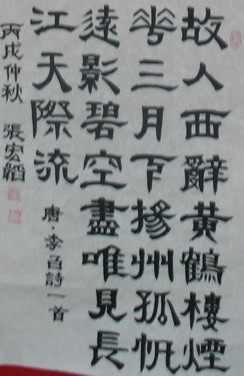 故人西辭黃鶴樓煙
華三月下揚州孤帆
遠影碧空盡唯見長
江天際流
唐·李白詩一首
丙戌仲秋 張宏韜